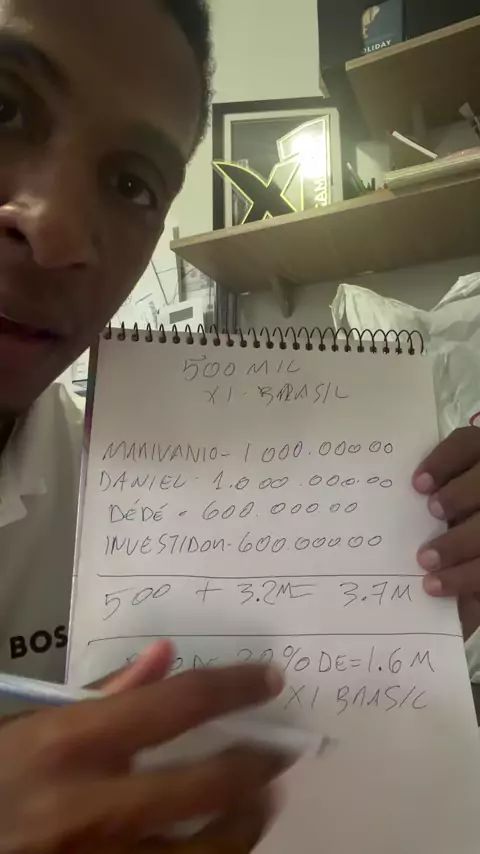 HOLIDAY
X1
GAM
500 MIL
X1 - BRASIL
MARIVANIO - 1 000.000 00
DANIEL - 1.000.000.00
DÉDÉ - 600.000 00
INVESTIDOR - 600.000 00
500 + 3.2M = 3.7M
BOS
% DE = 1.6 M
X1 BRASIL